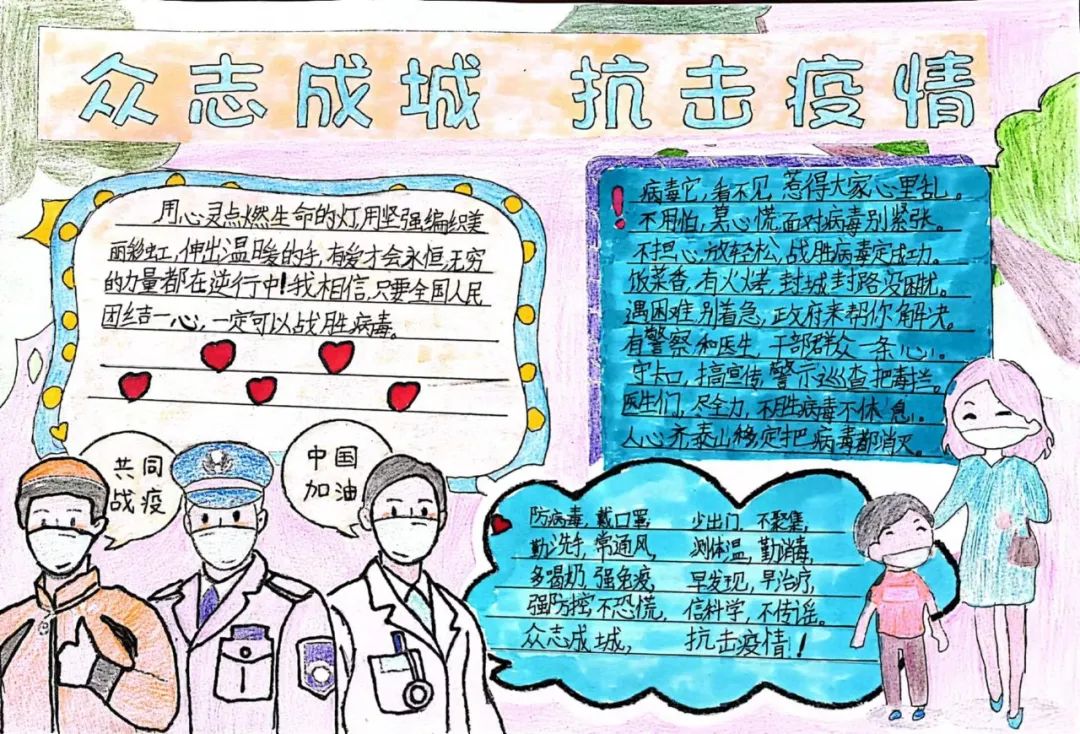 众志成城 抗击疫情
用心灵点燃生命的灯,用坚强编织美
丽彩虹,伸出温暖的手,有爱才会永恒,无穷
的力量都在逆行中!我相信,只要全国人民
团结一心,一定可以战胜病毒。
病毒它,看不见,惹得大家心里乱。
不用怕,莫心慌,面对病毒别紧张。
不担心,放轻松,战胜病毒定成功。
饭菜香,有火烤,封城封路没困扰。
遇困难,别着急,政府来帮你解决。
有警察和医生,干部群众一条心。
守卡口,搞宣传,警示巡查把毒拦。
医生们,尽全力,不胜病毒不休息。
人心齐泰山移定把病毒都消灭。
共同
战疫
中国
加油
防病毒,戴口罩, 少出门,不聚集,
勤洗手,常通风, 测体温,勤消毒,
多喝奶,强免疫, 早发现,早治疗,
强防控,不恐慌, 信科学,不传谣。
众志成城, 抗击疫情!